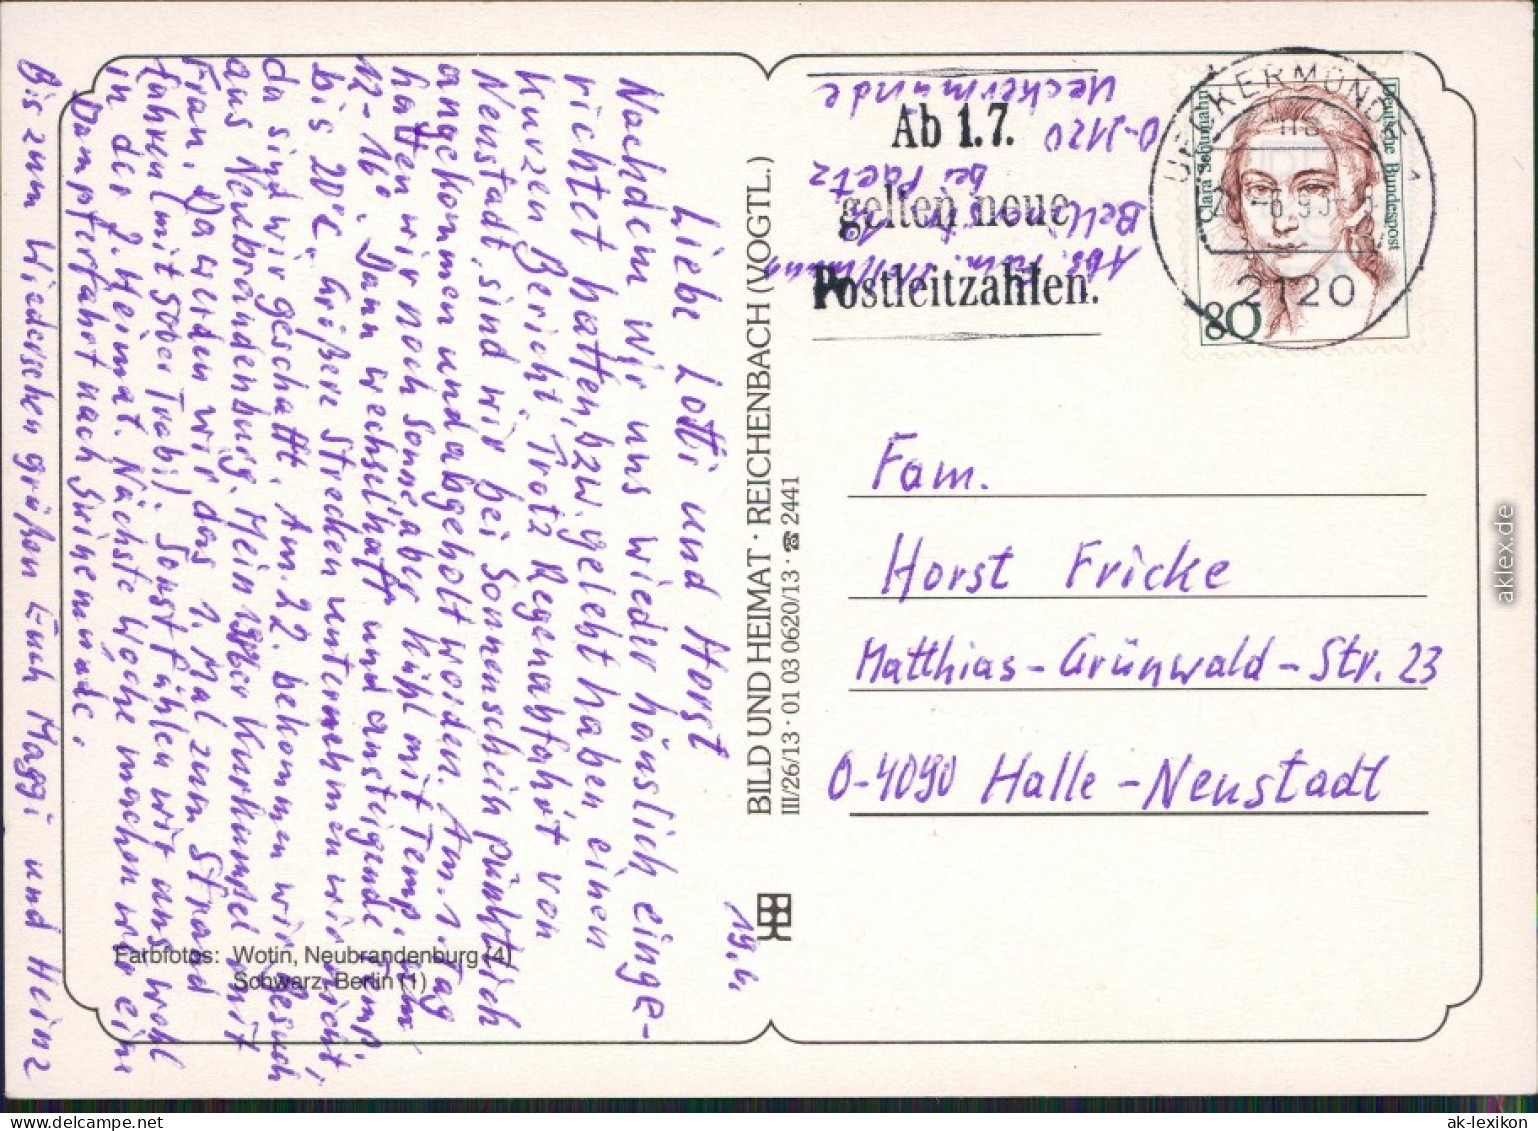 19.6.
Liebe Lotti und Horst
Nachdem wir uns wieder häuslich einge-
richtet hatten, bzw. gelebt haben einen
kurzen Bericht. Trotz Regenabfahrt von
Neustadt, sind wir bei Sonnenschein pünktlich
angekommen und abgeholt worden. Am 1. Tag
hatten wir noch Sonne, aber kühl mit Temp.
12-16°. Dann wechselhaft und ansteigende Temp.
bis 20°C. Größere Strecken unternehmen wir nicht,
da sind wir geschafft. Am 22. bekommen wir Besuch
aus Neubrandenburg. Mein Kurkumpel mit
Frau. Da werden wir das 1. Mal zum Strand
fahren (mit Trabi). Sonst fühlen wir uns wohl
in der 2. Heimat. Nächste Woche machen wir eine
Dampferfahrt nach Swinemünde.
Bis zum Wiedersehen grüßen Euch Maggi und Heinz
Farbfotos: Wotin, Neubrandenburg (4)
Schwarz, Berlin (1)
BILD UND HEIMAT · REICHENBACH (VOGTL.)
III/26/13 · 01 03 0620/13 · ☎ 2441
Abs. Fam.
bei Paetz
O-2120
Ueckermünde
Ab 1.7.
gelten neue
Postleitzahlen.
UECKERMÜNDE 1
2120
Clara Schumann
Deutsche Bundespost
80
Fam.
Horst Fricke
Matthias-Grünwald-Str. 23
O-4090 Halle-Neustadt
aklex.de
ak-lexikon